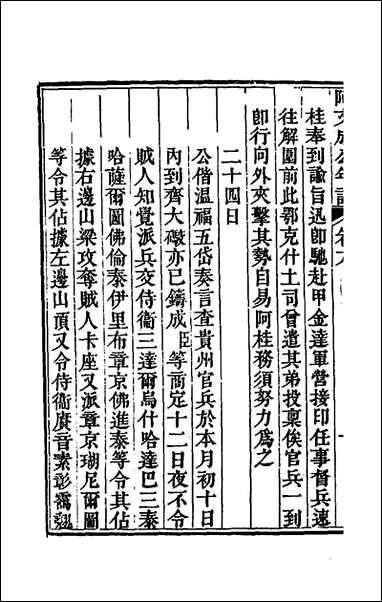 阿文成公年譜　卷六
桂奉到諭旨迅卽馳赴甲金達軍營接印任事督兵速
往解圍前此鄂克什土司曾遣其弟投稟俟官兵一到
卽行向外夾擊其勢自易阿桂務須努力爲之
二十四日
公偕溫福五岱奏言查貴州官兵於本月初十日
內到齊大礮亦已鑄成臣等商定十二日夜不令
賊人知覺派兵交侍衞三達爾烏什哈達巴三泰
哈薩爾圖佛倫泰伊里布章京佛進泰等令其佔
據右邊山梁攻奪賊人卡座又派章京瑚尼爾圖
等令其佔據左邊山頂又令侍衞賡音素彰靄